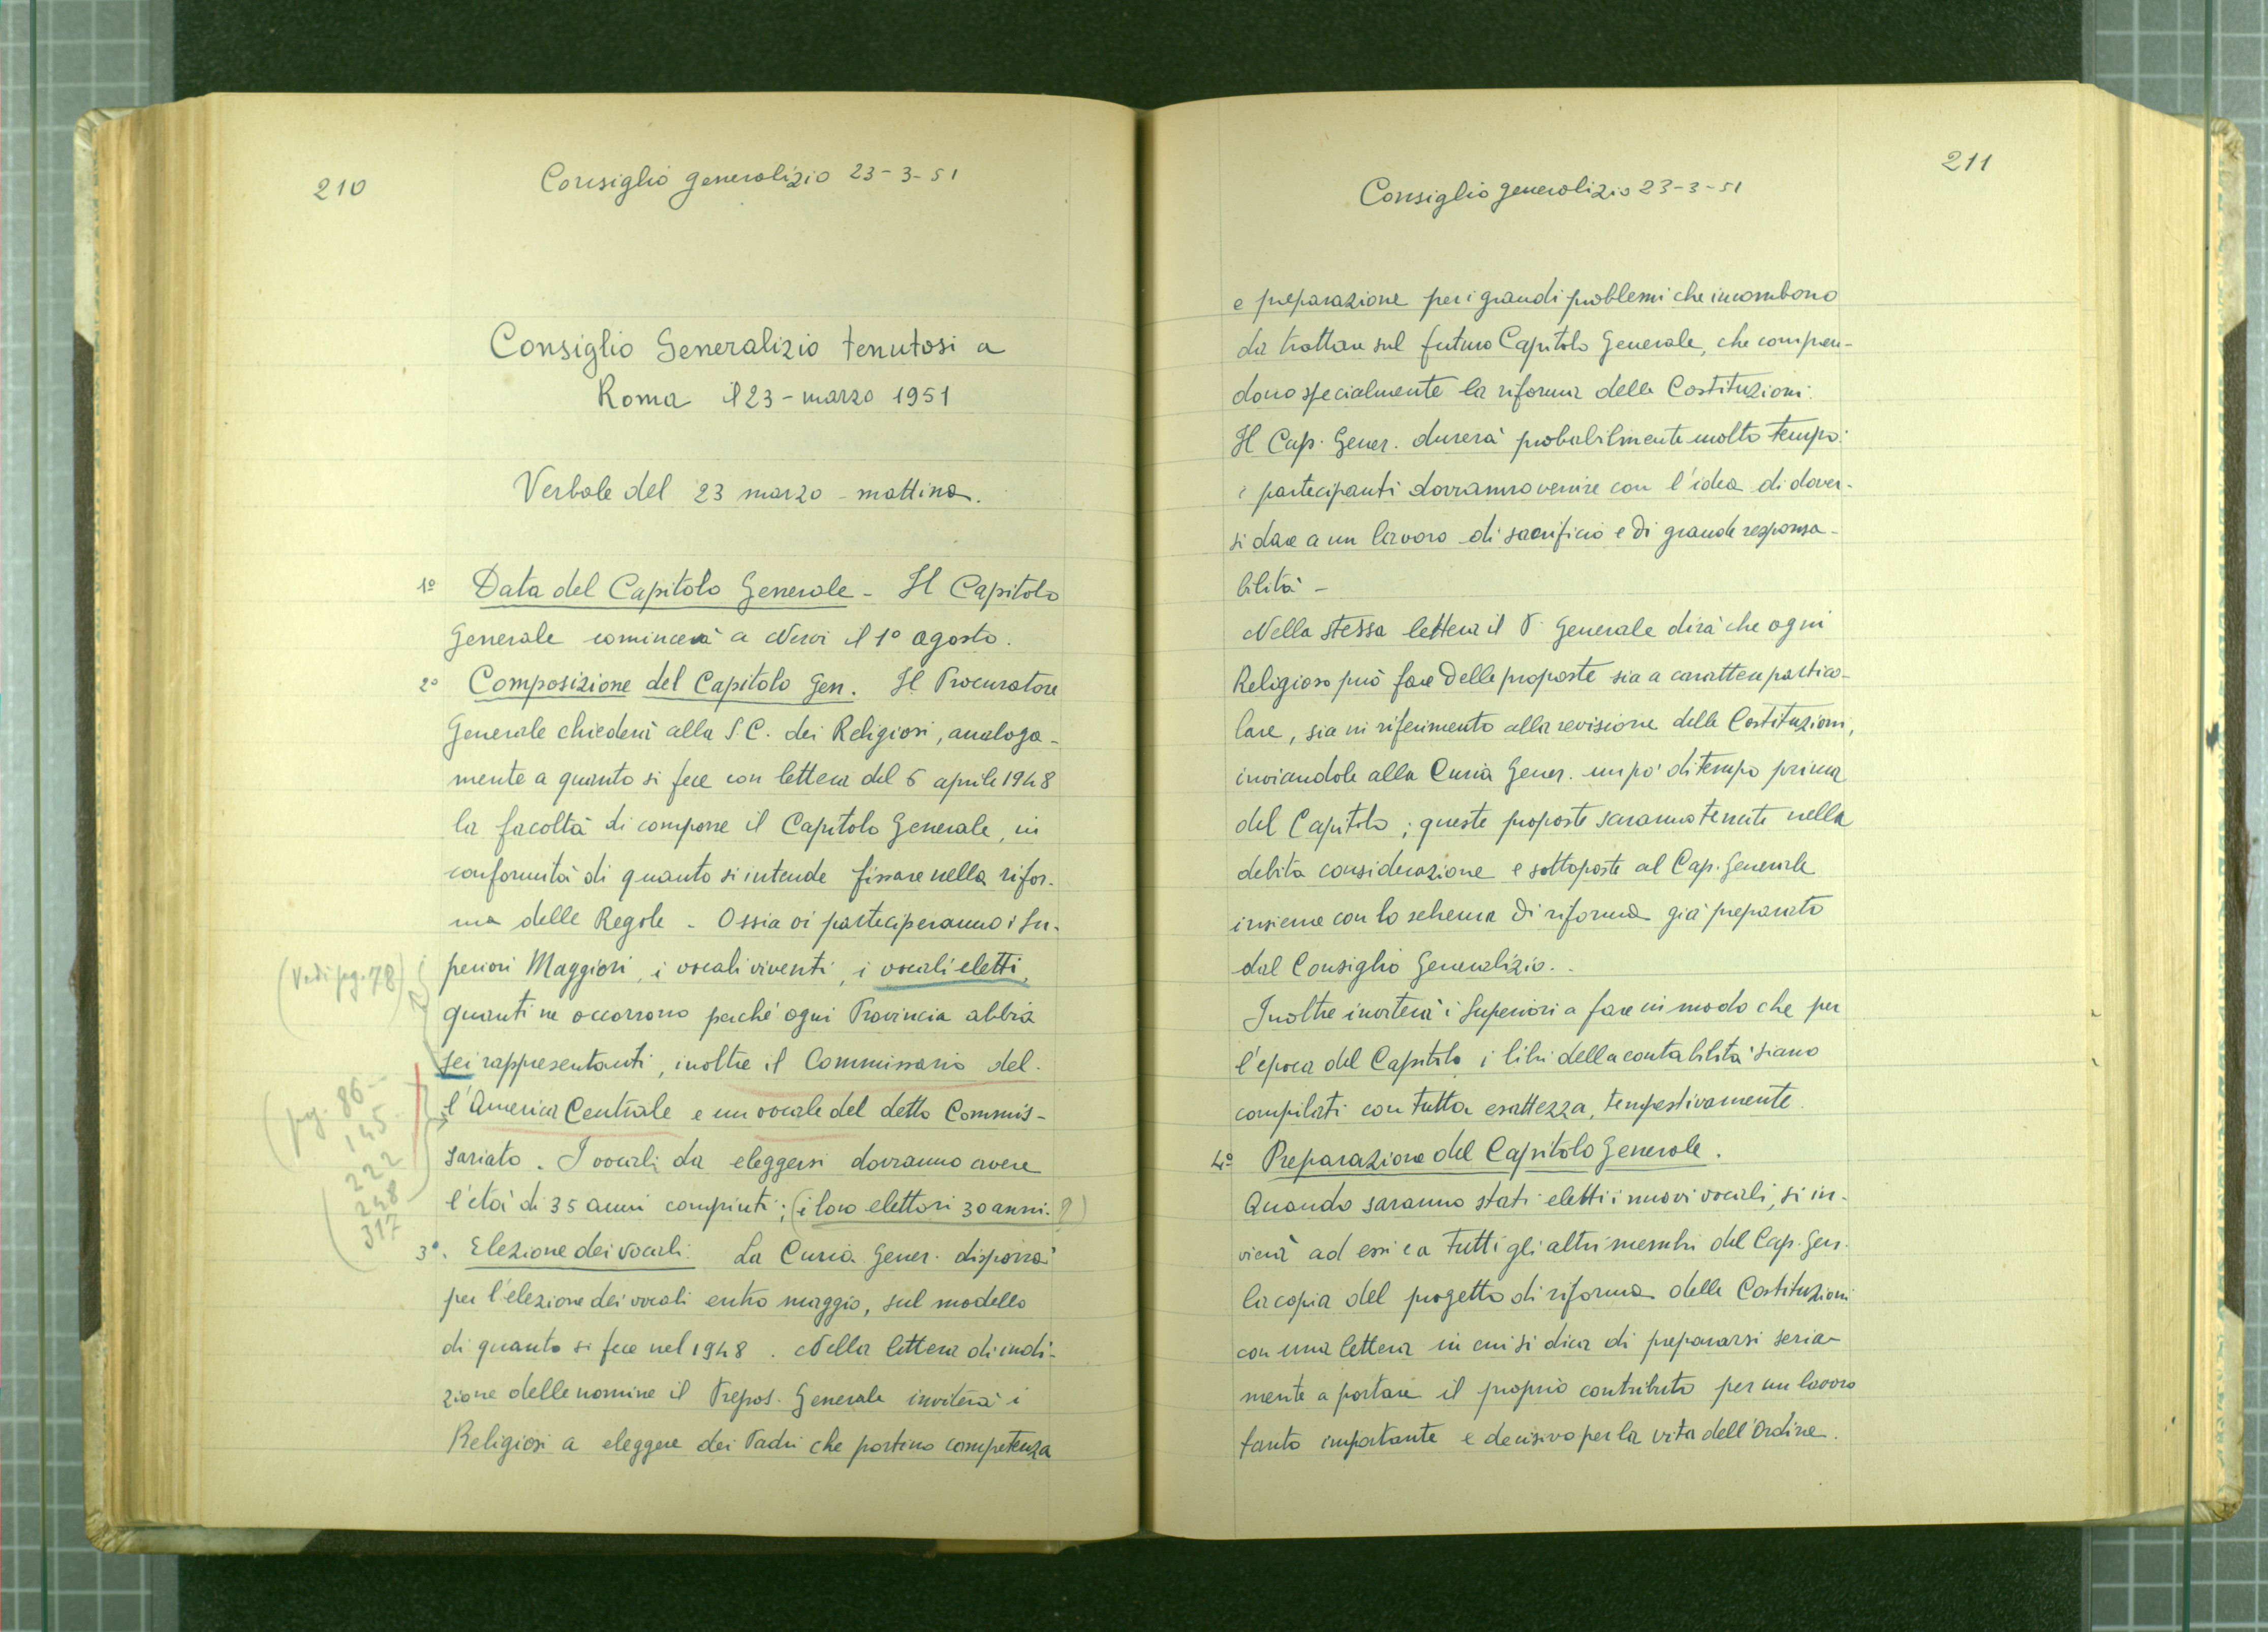 210
Consiglio generalizio 23-3-51
Consiglio Generalizio tenutosi a
Roma il 23-marzo 1951
Verbale del 23 marzo - mattina.
1º Data del Capitolo Generale - Il Capitolo
Generale comincerà a Nervi il 1º agosto.
2º Composizione del Capitolo Gen. Il Procuratore
Generale chiederà alla S.C. dei Religiosi, analoga-
mente a quanto si fece con lettera del 6 aprile 1948
la facoltà di comporre il Capitolo Generale, in
conformità di quanto si intende fissare nella rifor-
ma delle Regole - Ossia vi parteciperanno i Su-
(Vedi pg. 78)
periori Maggiori, i vocali viventi, i vocali eletti,
quanti ne occorrono perché ogni Provincia abbia
sei rappresentanti, inoltre il Commissario del-
(pg. 86-
145-
222
248
317
l'America Centrale e un vocale del detto Commis-
sariato. I vocali da eleggersi dovranno avere
l'età di 35 anni compiuti; (i loro elettori 30 anni. ?)
3º. Elezione dei vocali. La Curia Gener. disporrà
per l'elezione dei vocali entro maggio, sul modello
di quanto si fece nel 1948. Nella lettera di indi-
zione delle nomine il Prepos. Generale inviterà i
Religiosi a eleggere dei Padri che portino competenza
211
Consiglio generalizio 23-3-51
e preparazione per i grandi problemi che incombono
da trattare sul futuro Capitolo Generale, che compren-
dono specialmente la riforma delle Costituzioni.
Il Cap. Gener. durerà probabilmente molto tempo:
i partecipanti dovranno venire con l'idea di dover-
si dare a un lavoro di sacrificio e di grande responsa-
bilità -
Nella stessa lettera il P. Generale dirà che ogni
Religioso può fare delle proposte sia a carattere partico-
lare, sia in riferimento alla revisione delle Costituzioni,
inviandole alla Curia Gener. un po' di tempo prima
del Capitolo; queste proposte saranno tenute nella
debita considerazione e sottoposte al Cap. Generale
insieme con lo schema di riforma già preparato
dal Consiglio Generalizio.
Inoltre inviterà i Superiori a fare in modo che per
l'epoca del Capitolo i libri della contabilità siano
compilati con tutta esattezza, tempestivamente.
4º Preparazione del Capitolo Generale.
Quando saranno stati eletti i nuovi vocali, si in-
vierà ad essi e a tutti gli altri membri del Cap. Gen.
la copia del progetto di riforma delle Costituzioni
con una lettera in cui si dica di prepararsi seria-
mente a portare il proprio contributo per un lavoro
tanto importante e decisivo per la vita dell'Ordine.